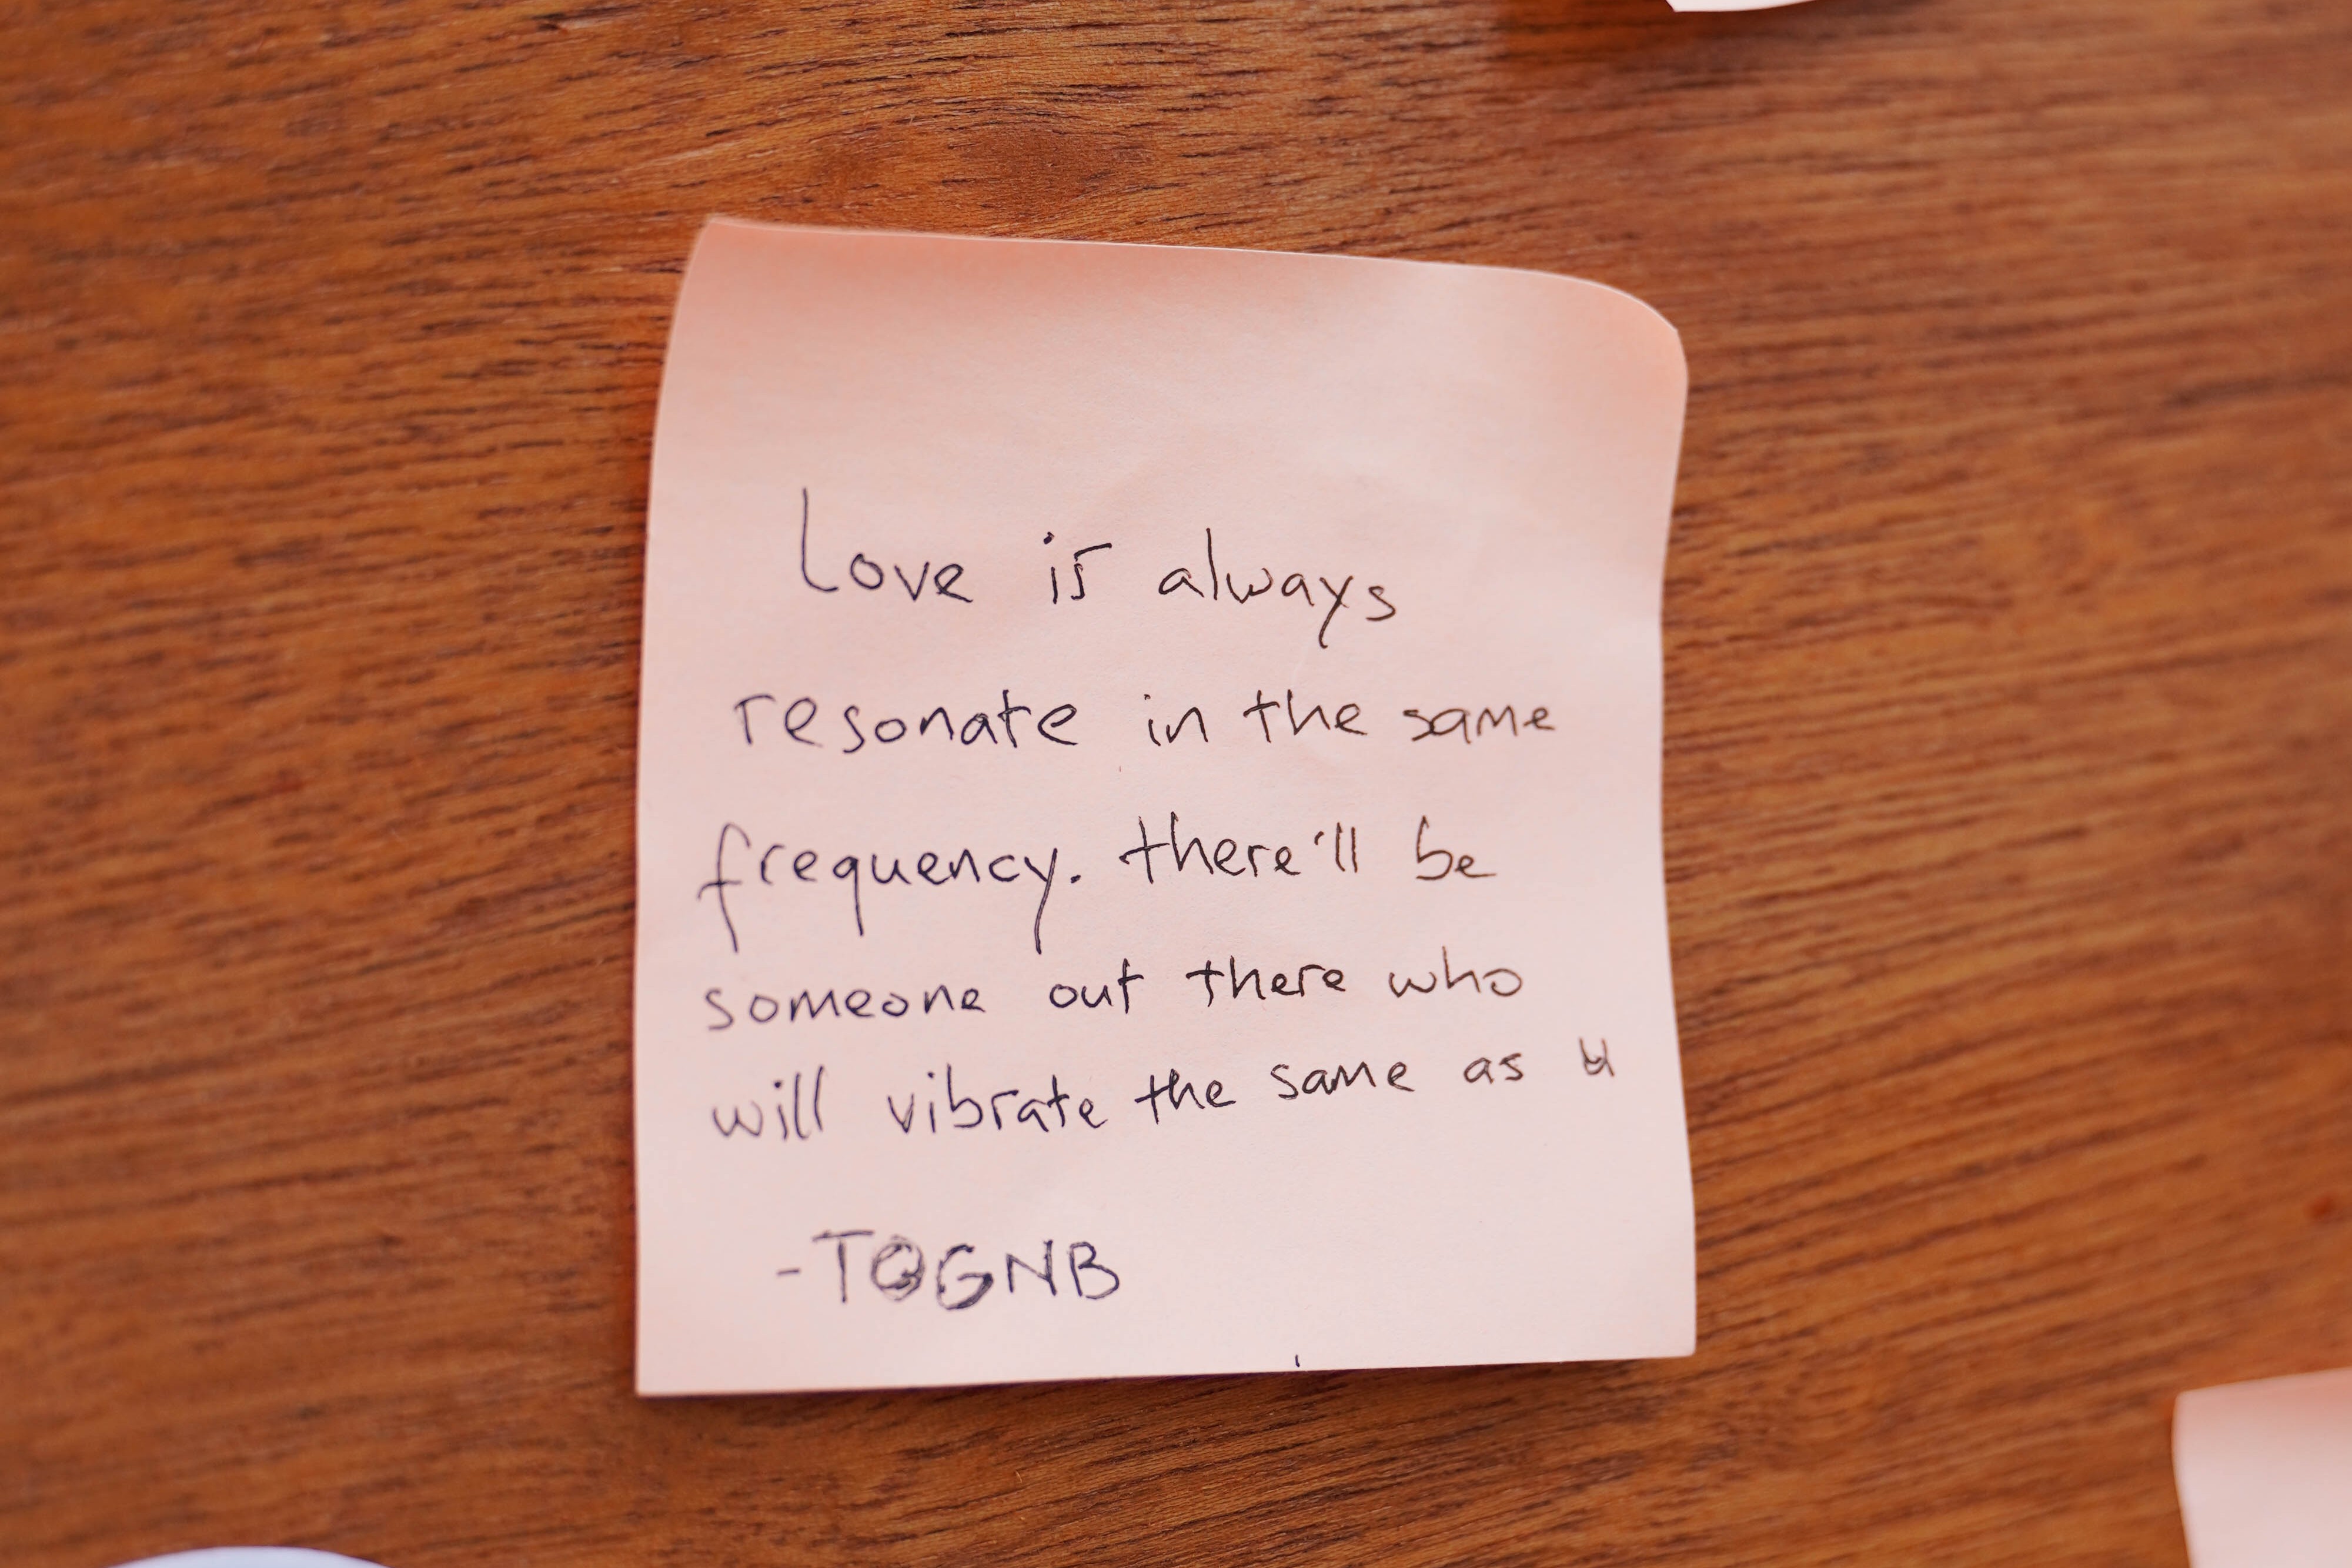 Love is always
resonate in the same
frequency. there'll be
someone out there who
will vibrate the same as u
-TOGNB